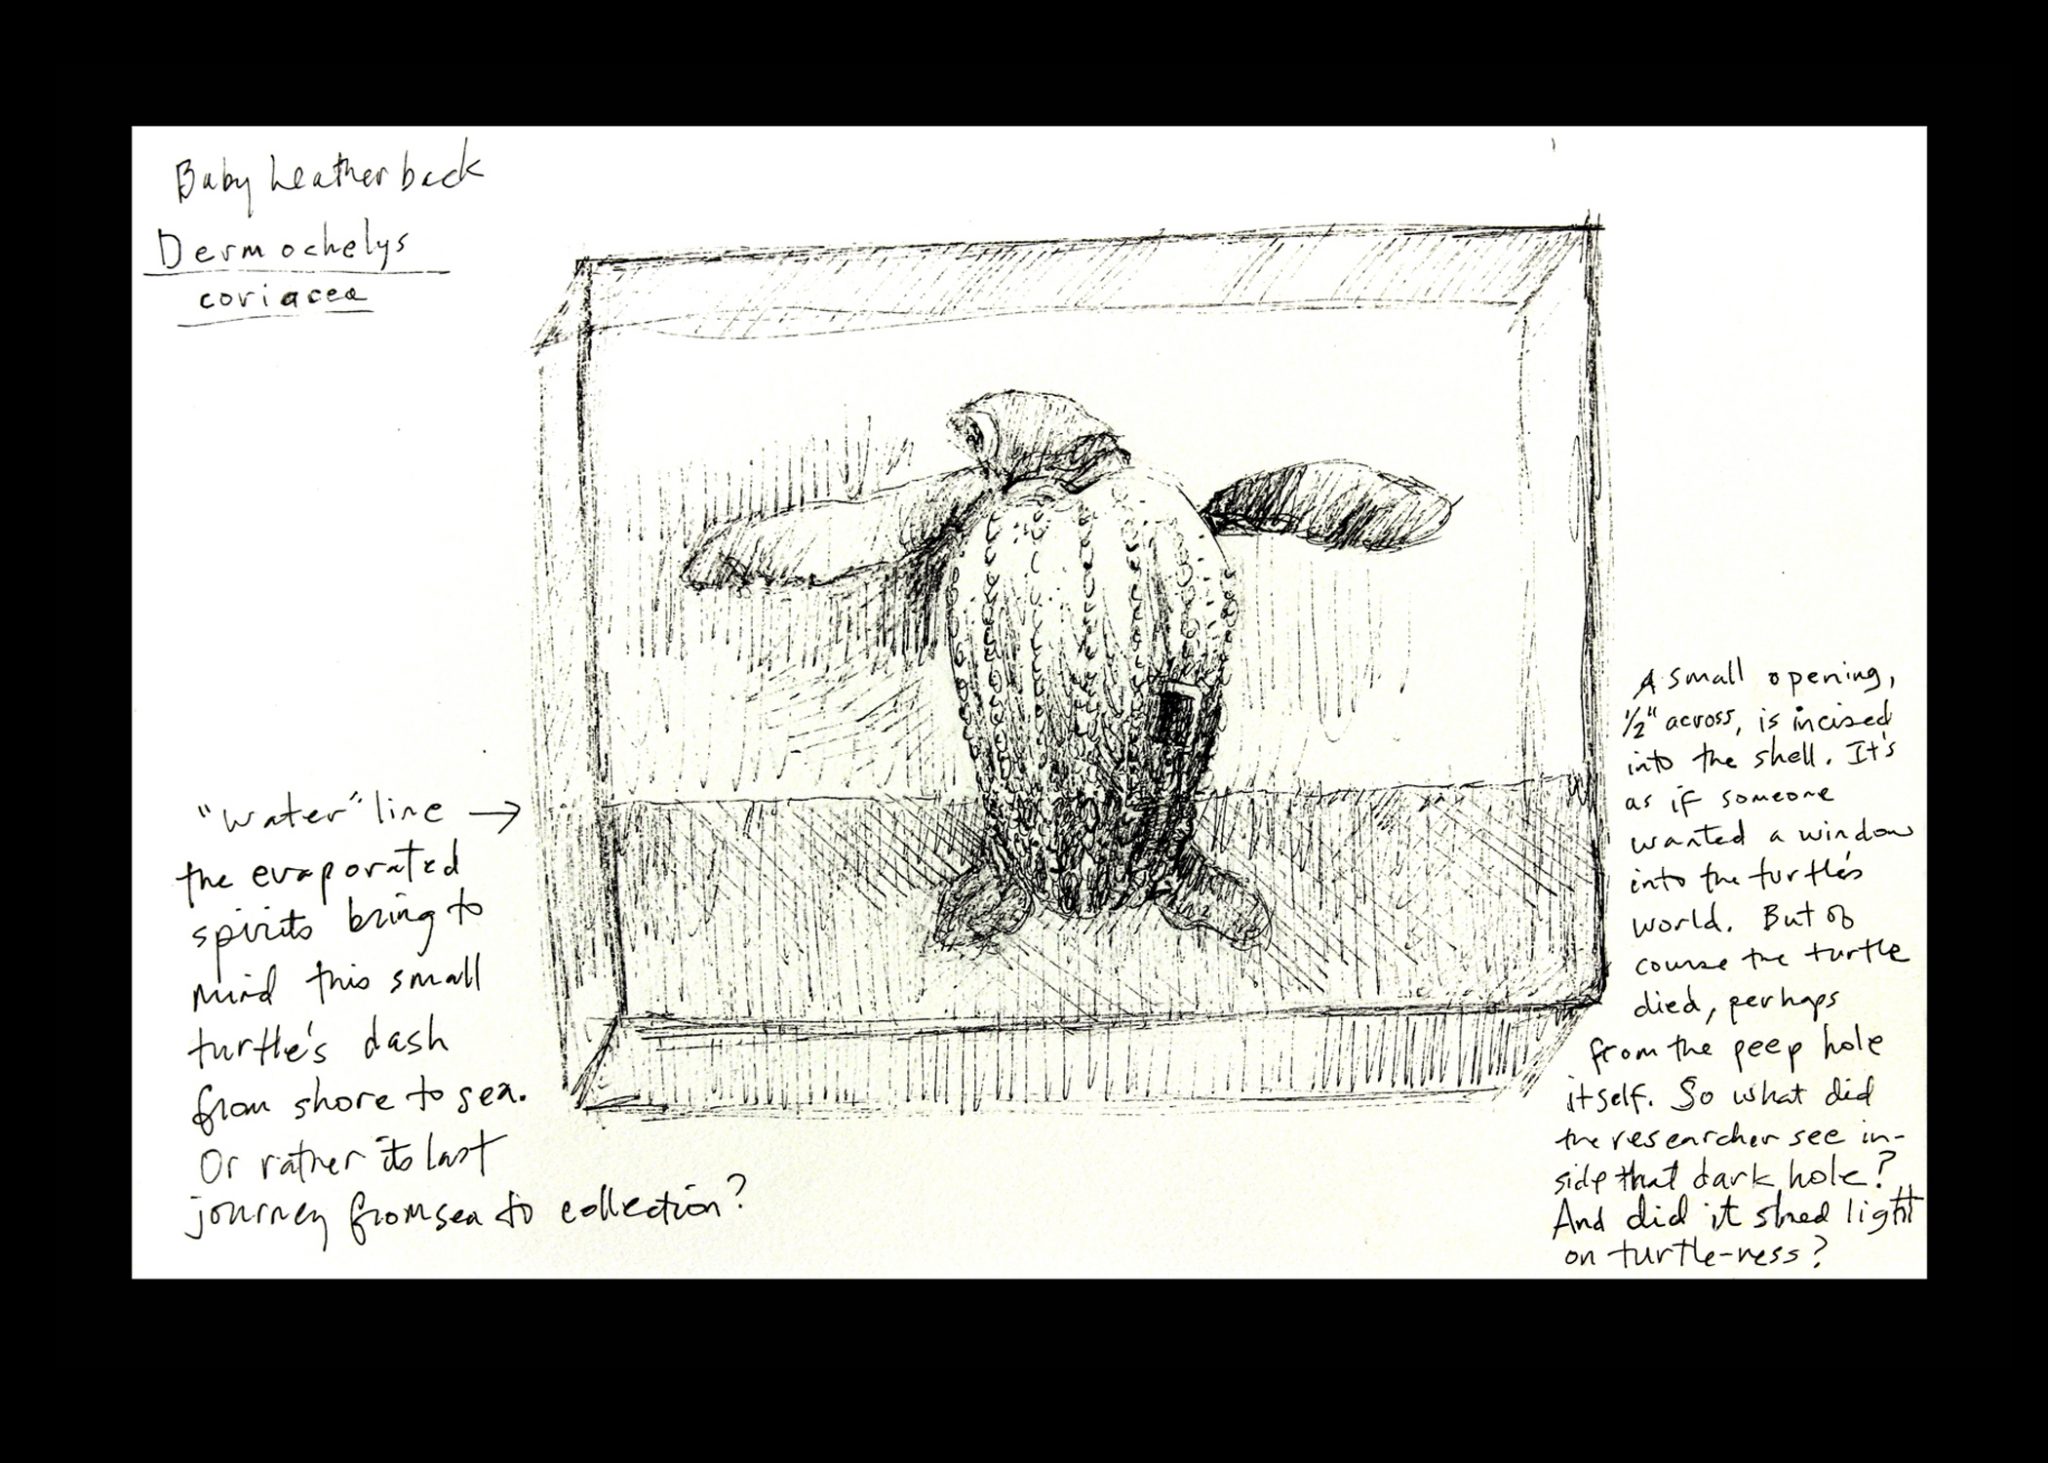 Baby Leatherback
Dermochelys
coriacea
"Water" line →
the evaporated
spirits bring to
mind this small
turtle's dash
from shore to sea.
Or rather its last
journey from sea to collection?
A small opening,
1/2" across, is incised
into the shell. It's
as if someone
wanted a window
into the turtle's
world. But of
course the turtle
died, perhaps
from the peep hole
itself. So what did
the researcher see in-
side that dark hole?
And did it shed light
on turtle-ness?